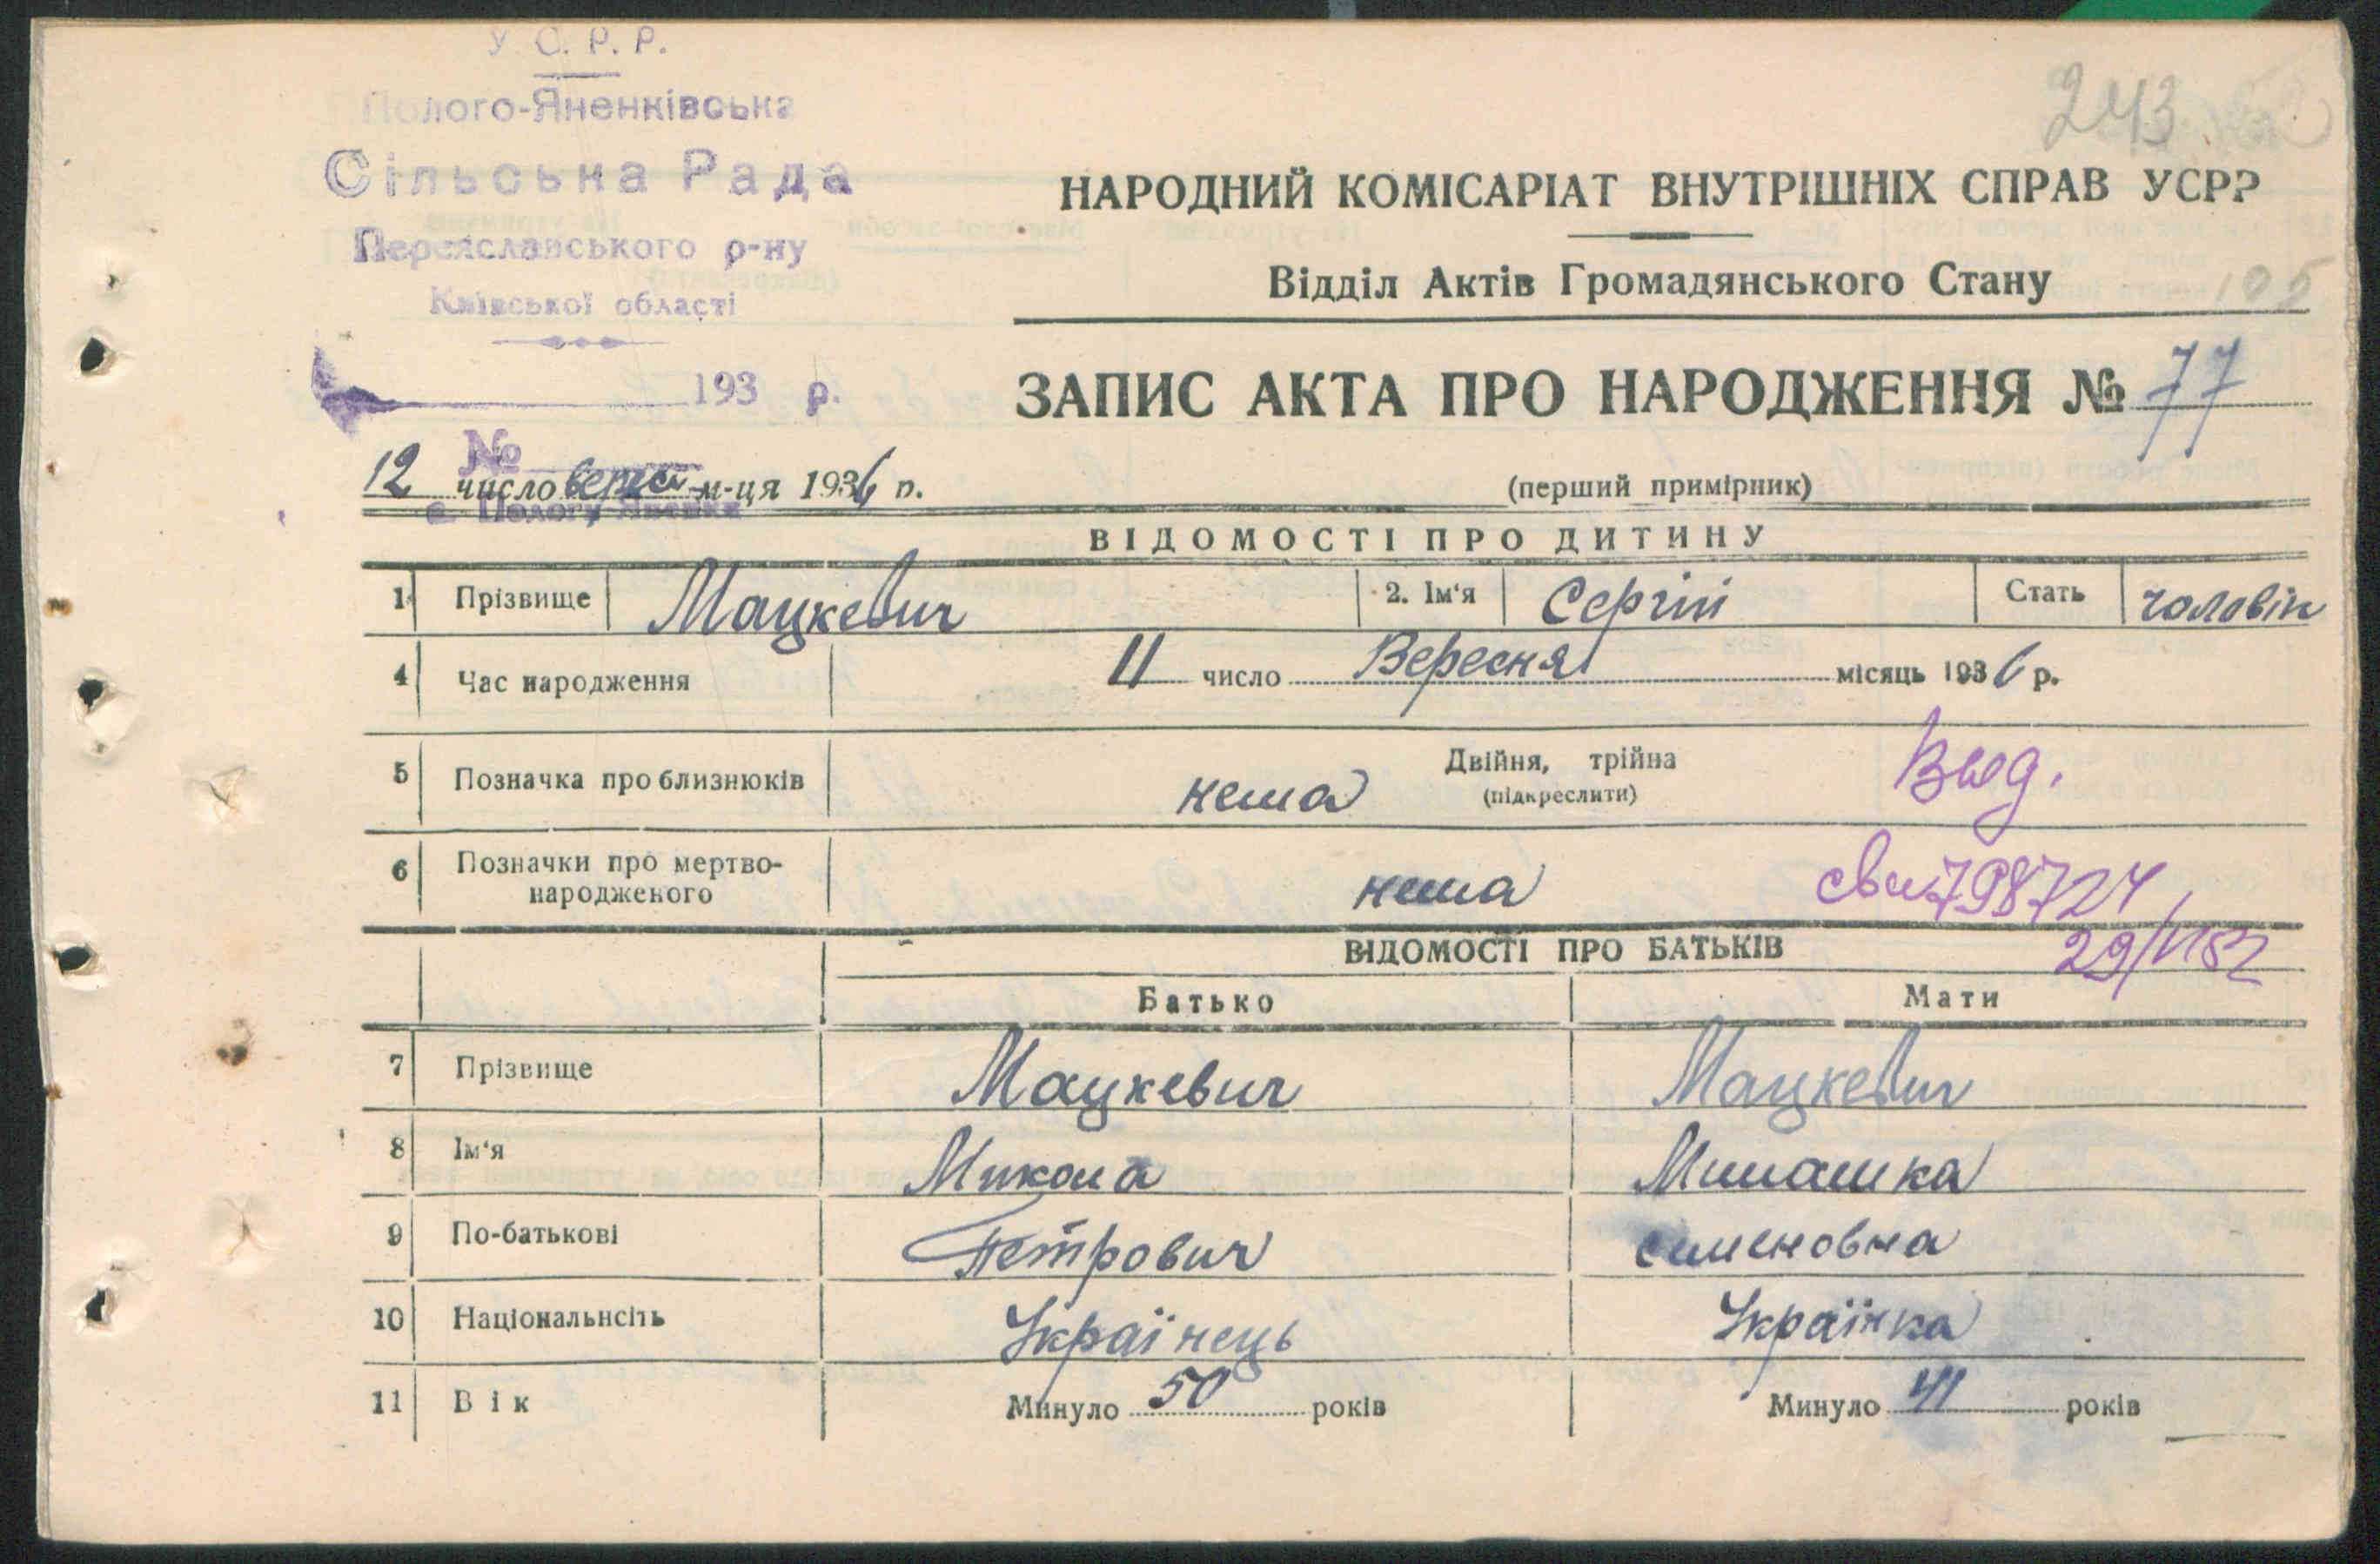 У. С. Р. Р.
Полого-Яненківська
Сільська Рада
Переяславського р-ну
Київської області
193 р.
№
с. Пологи-Яненки
243
НАРОДНИЙ КОМІСАРІАТ ВНУТРІШНІХ СПРАВ УСРР
Відділ Актів Громадянського Стану
105
ЗАПИС АКТА ПРО НАРОДЖЕННЯ № 77
12 число м-ця 1936 р.
(перший примірник)
ВІДОМОСТІ ПРО ДИТИНУ
1 Прізвище Мацкевич 2. Ім'я Сергій Стать чоловік
4 Час народження 11 число Вересня місяць 1936 р.
5 Позначка про близнюків нема Двійня, трійна
(підкреслити)
Выд.
6 Позначки про мертво-
народженого нема
798724
29/
ВІДОМОСТІ ПРО БАТЬКІВ
Батько Мати
7 Прізвище Мацкевич Мацкевич
8 Ім'я Микола Милашка
9 По-батькові Петрович семеновна
10 Національнсіть Українець Українка
11 Вік Минуло 50 років Минуло 41 років